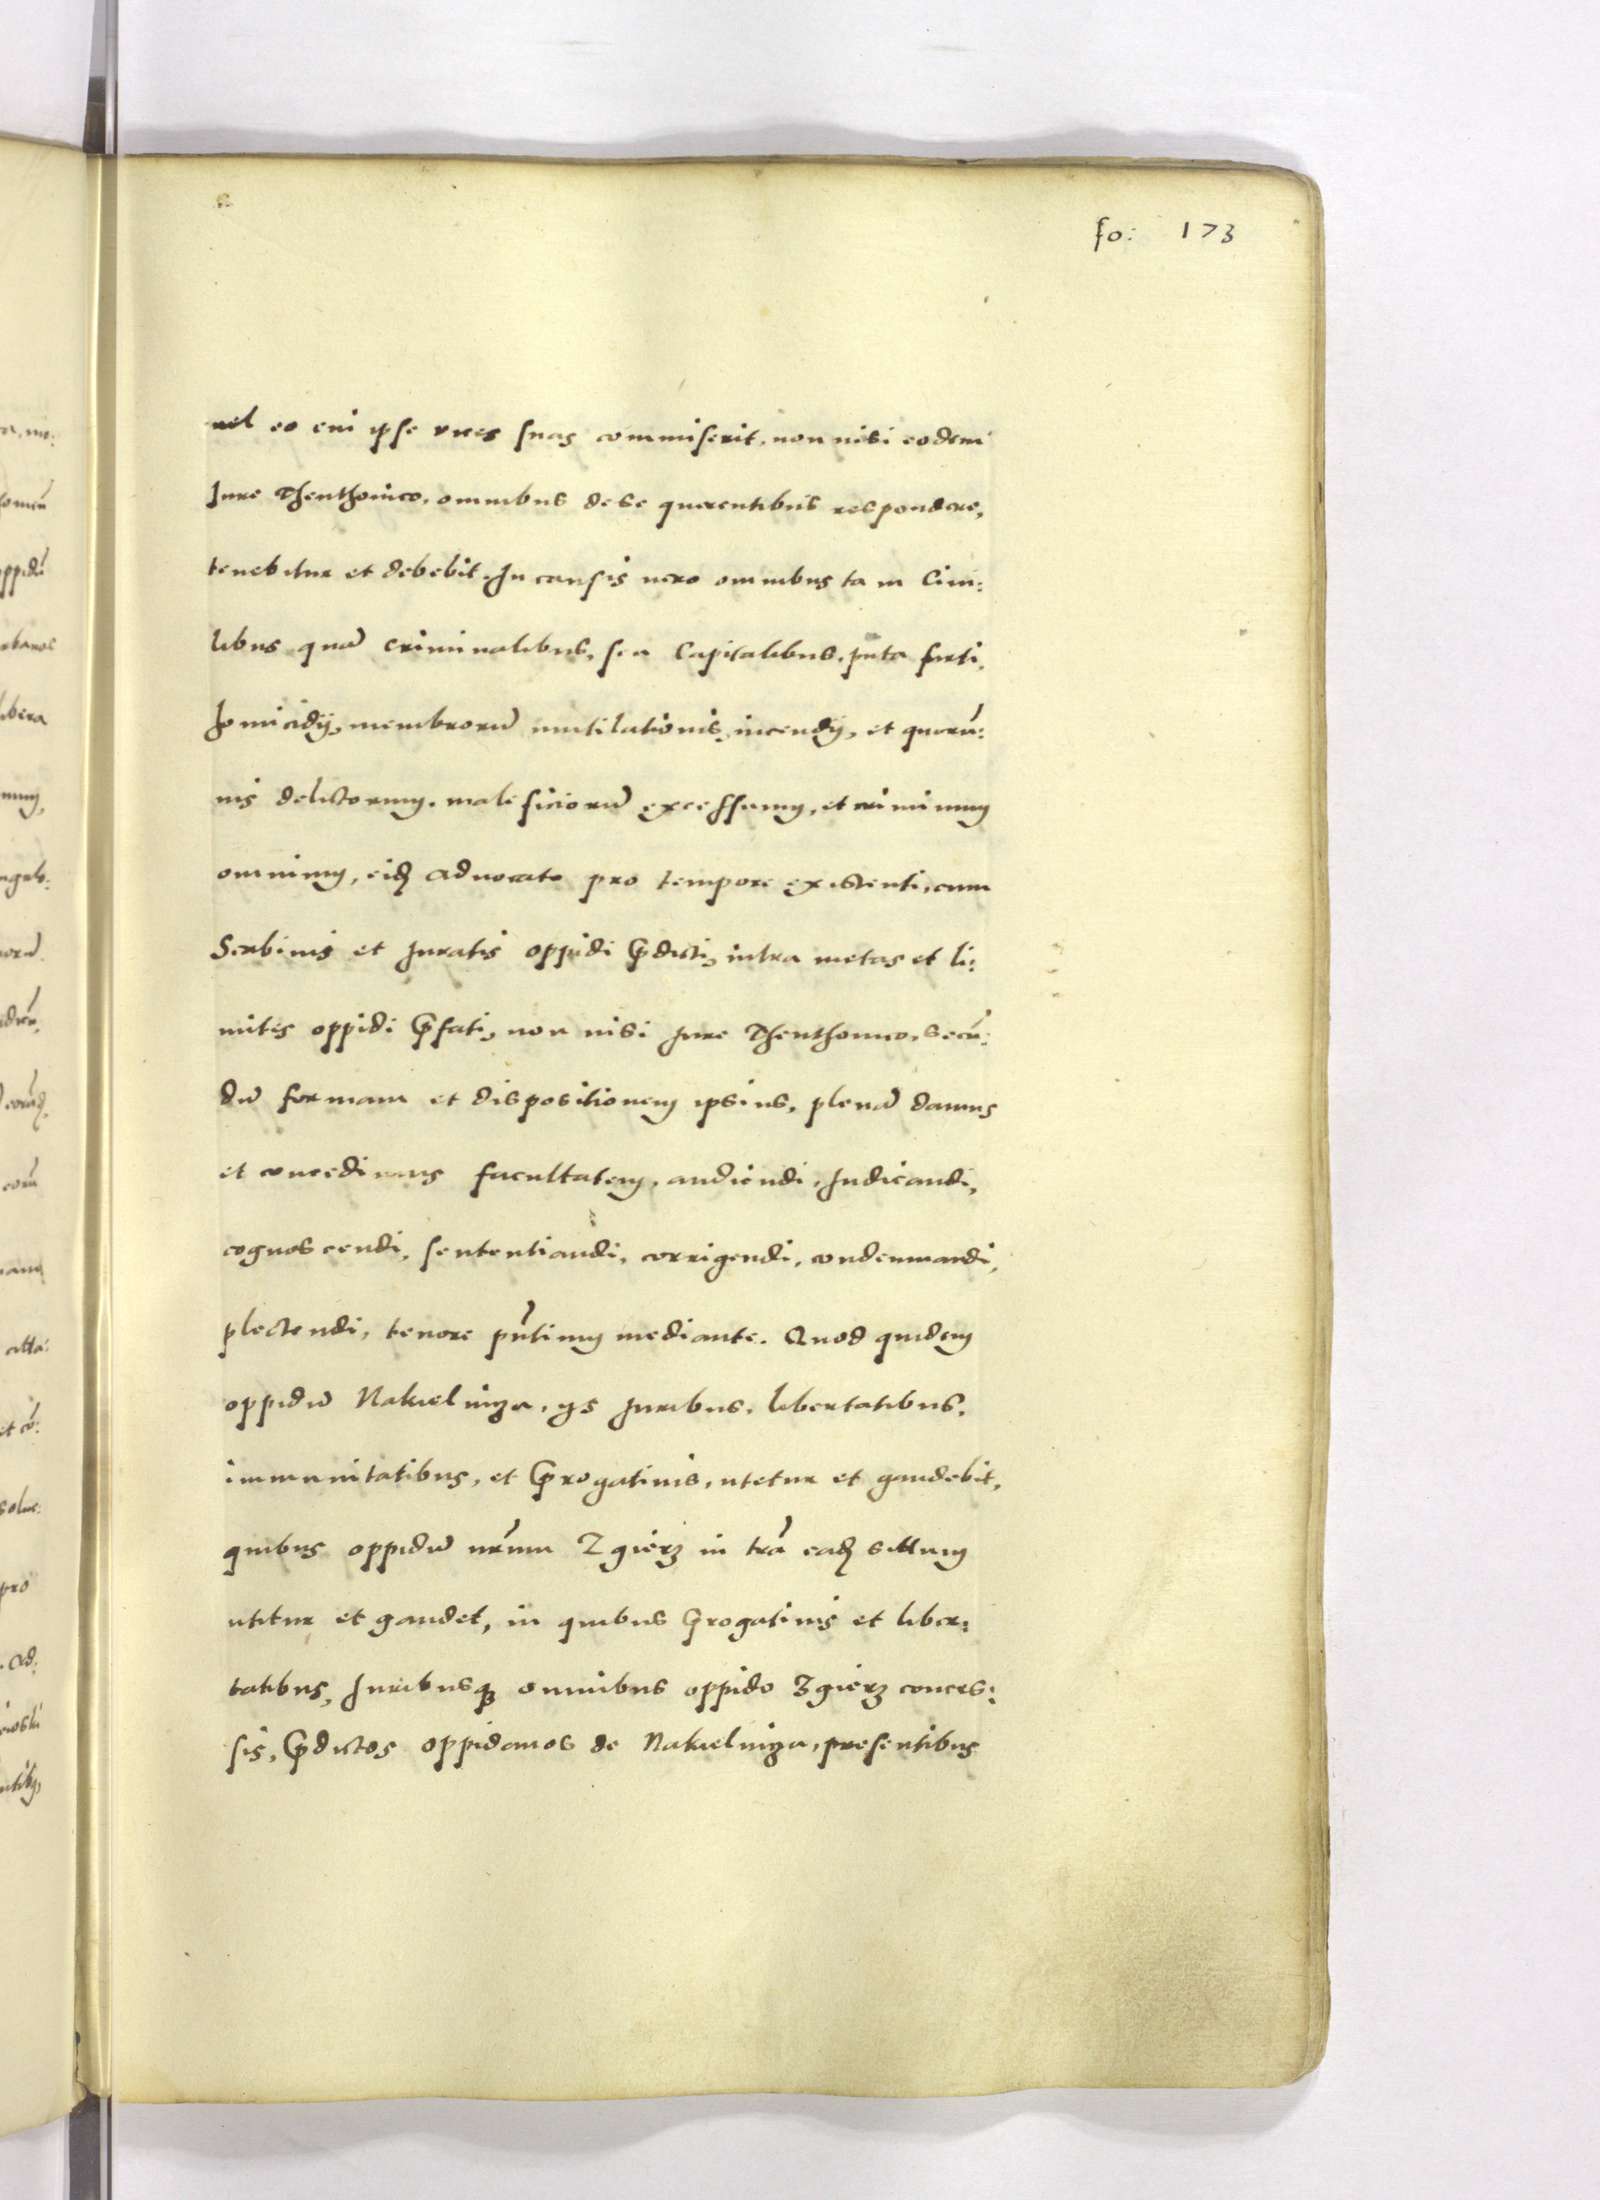 fo: 173
uel eo cui ipse vices suas commiserit, non nisi eodem
Jure Theuthonico, omnibus de se querentibus respondere,
tenebitur et debebit. In causis uero omnibus tam Ciui:
libus quā criminalibus, seu Capitalibus, puta furti,
homicidij, membrorū mutilationis, incendij, et quorū:
uis delictorum, maleficiorū excessuum, et criminum
omnium, eidē aduocato pro tempore existenti, cum
Scabinis et Juratis oppidi p̄dicti, intra metas et li:
mites oppidi p̄fati, non nisi Jure Theuthonico, secū:
dū formam et dispositionem ipsius, plenā damus
et concedimus facultatem, audiendi, Judicandi,
cognoscendi, sententiandi, corrigendi, condemnandi,
plectendi, tenore pn̄tium mediante. Quod quidem
oppidū Nakielnicza, ijs Juribus, libertatibus,
immunitatibus, et p̄rogatiuis, utetur et gaudebit,
quibus oppidū nr̄um Zgierz in tr̄a eadē situm
utitur et gaudet, in quibus p̄rogatiuis et liber:
tatibus, Juribusq̨ omnibus oppido Zgierz conces:
sis, p̄dictos oppidanos de Nakielnicza, presentibus